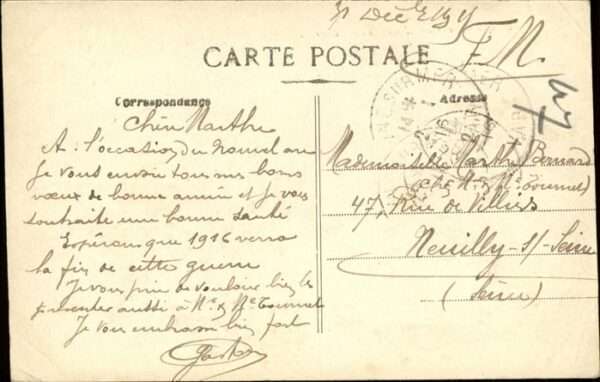 31 Déc
F.M.
CARTE POSTALE
Correspondance
Adresse
47
Chère Marthe
A l'occasion du nouvel an
Je vous envoie tous mes bons
voeux de bonne année et je vous
souhaite une bonne santé
Espérons que 1916 verra
la fin de cette guerre
Je vous prie de vouloir bien les
présenter aussi à Mr & Me Tournel
Je vous embrasse bien fort
Gaston
Mademoiselle Marthe Bernard
chez Mr & Me Tournel
47, Rue de Villiers
Neuilly-s/-Seine
(Seine)